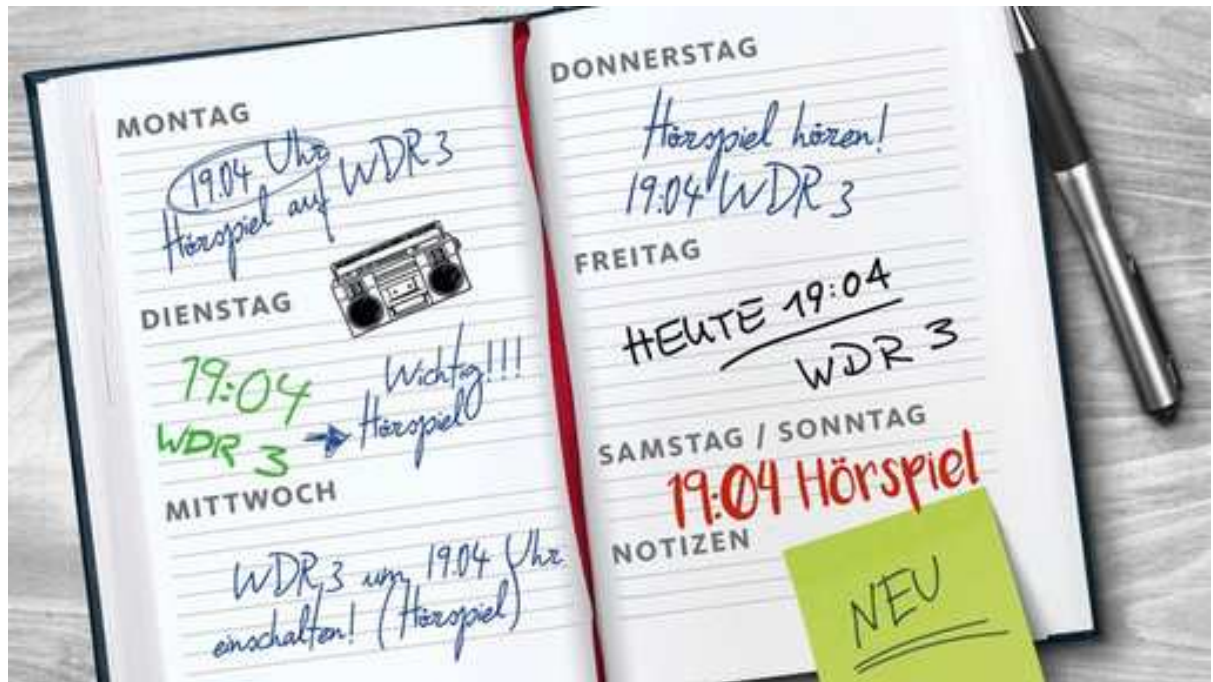 MONTAG
19.04 Uhr
Hörspiel auf WDR 3
DIENSTAG
19:04
WDR 3
Wichtig!!!
Hörspiel
MITTWOCH
WDR 3 um 19.04 Uhr
einschalten! (Hörspiel)
DONNERSTAG
Hörspiel hören!
19:04 WDR 3
FREITAG
HEUTE 19:04
WDR 3
SAMSTAG / SONNTAG
19:04 Hörspiel
NOTIZEN
NEU